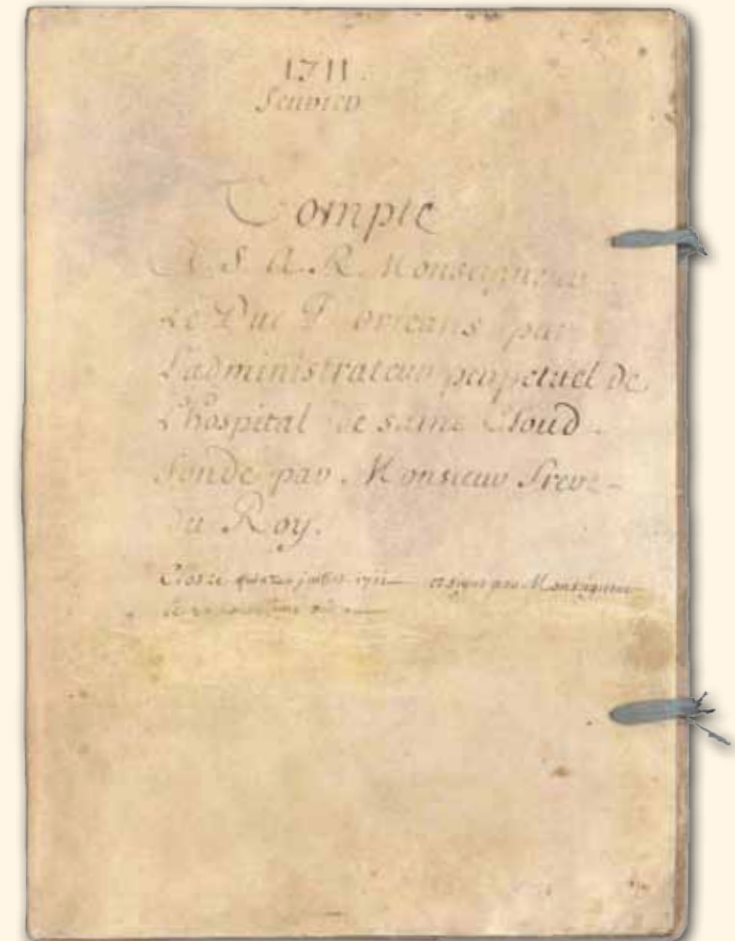 1711.
Compte
A S. A. R. Monseigneur
Le Duc D'orleans par
L'administrateur perpetuel de
L'hospital de saint Cloud.
fondé par Monsieur frere-
du Roy.
Clos le juillet 1711 et signé par Monseigneur